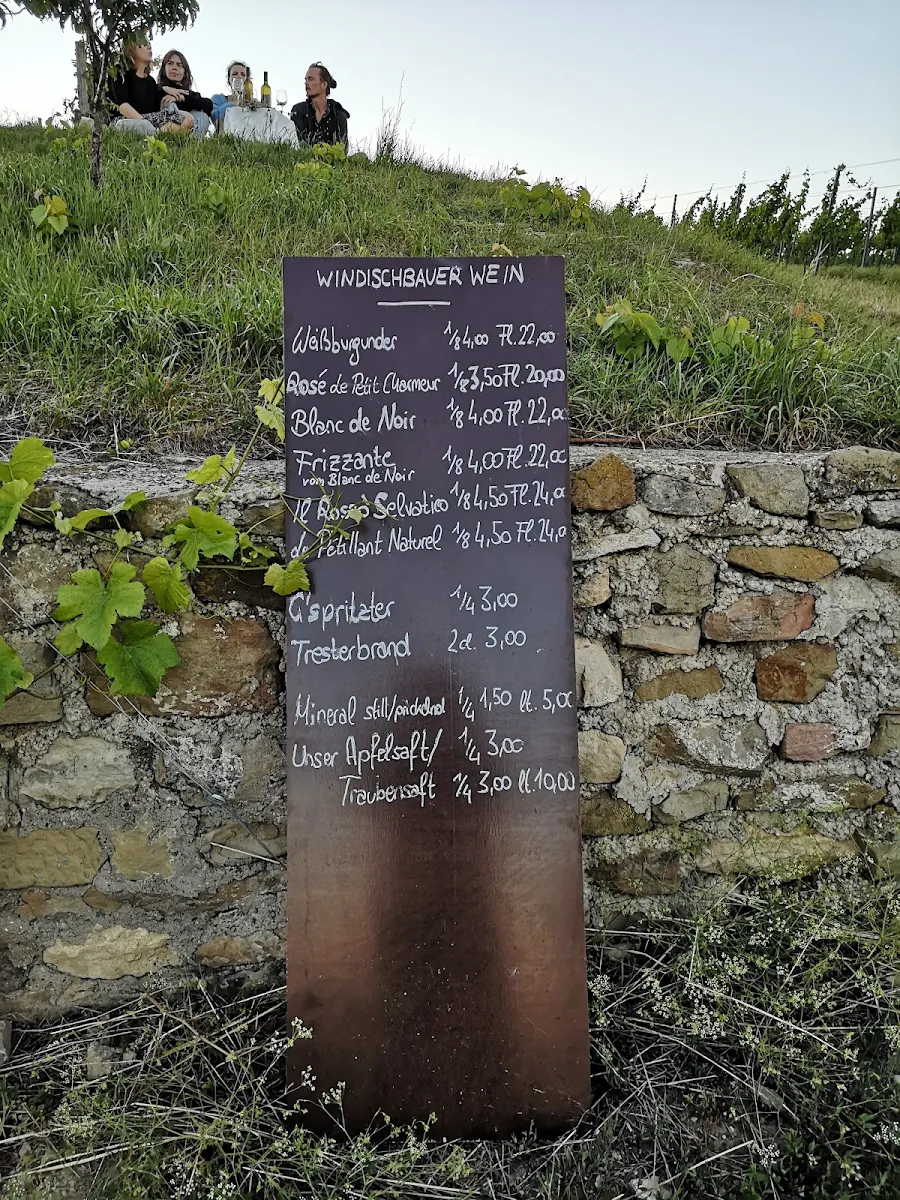 WINDISCHBAUER WEIN
Weißburgunder 1/8 4,00 Fl. 22,00
Rosé de Petit Charmeur 1/8 3,50 Fl. 20,00
Blanc de Noir 1/8 4,00 Fl. 22,00
Frizzante 1/8 4,00 Fl. 22,00
vom Blanc de Noir
Il Rosso Selvatico 1/8 4,50 Fl. 24,0
de Pétillant Naturel 1/8 4,50 Fl. 24,0
G'spritzter 1/4 3,00
Tresterbrand 2cl. 3,00
Mineral still/prickelnd 1/4 1,50 lt. 5,00
Unser Apfelsaft/ 1/4 3,00
Traubensaft 1/4 3,00 lt. 10,00